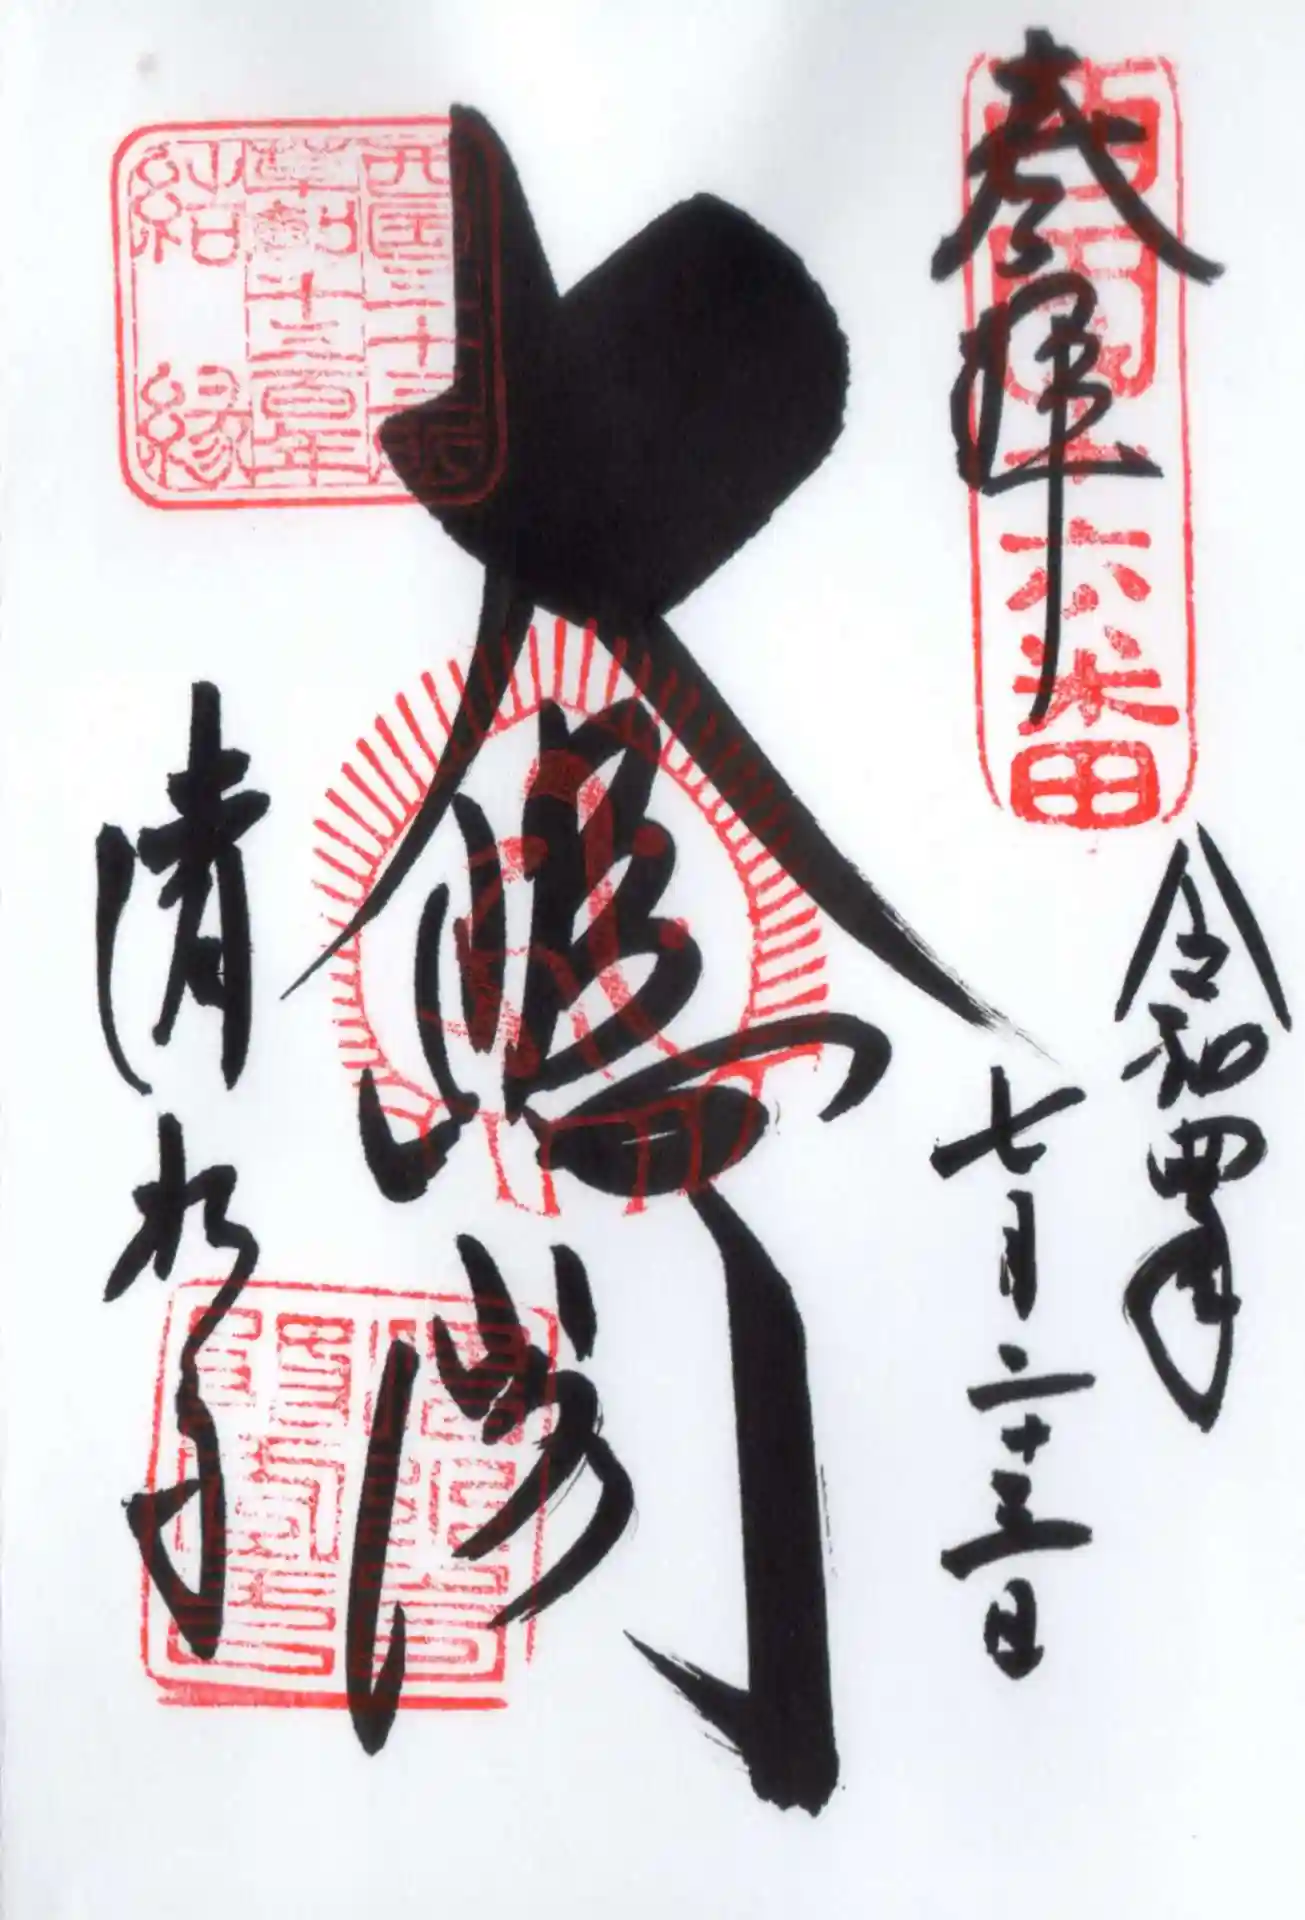 西国十六番
奉拝
令和四年
七月二十三日
大悲閣
西国三十三所
草創千三百年
結縁
清水寺